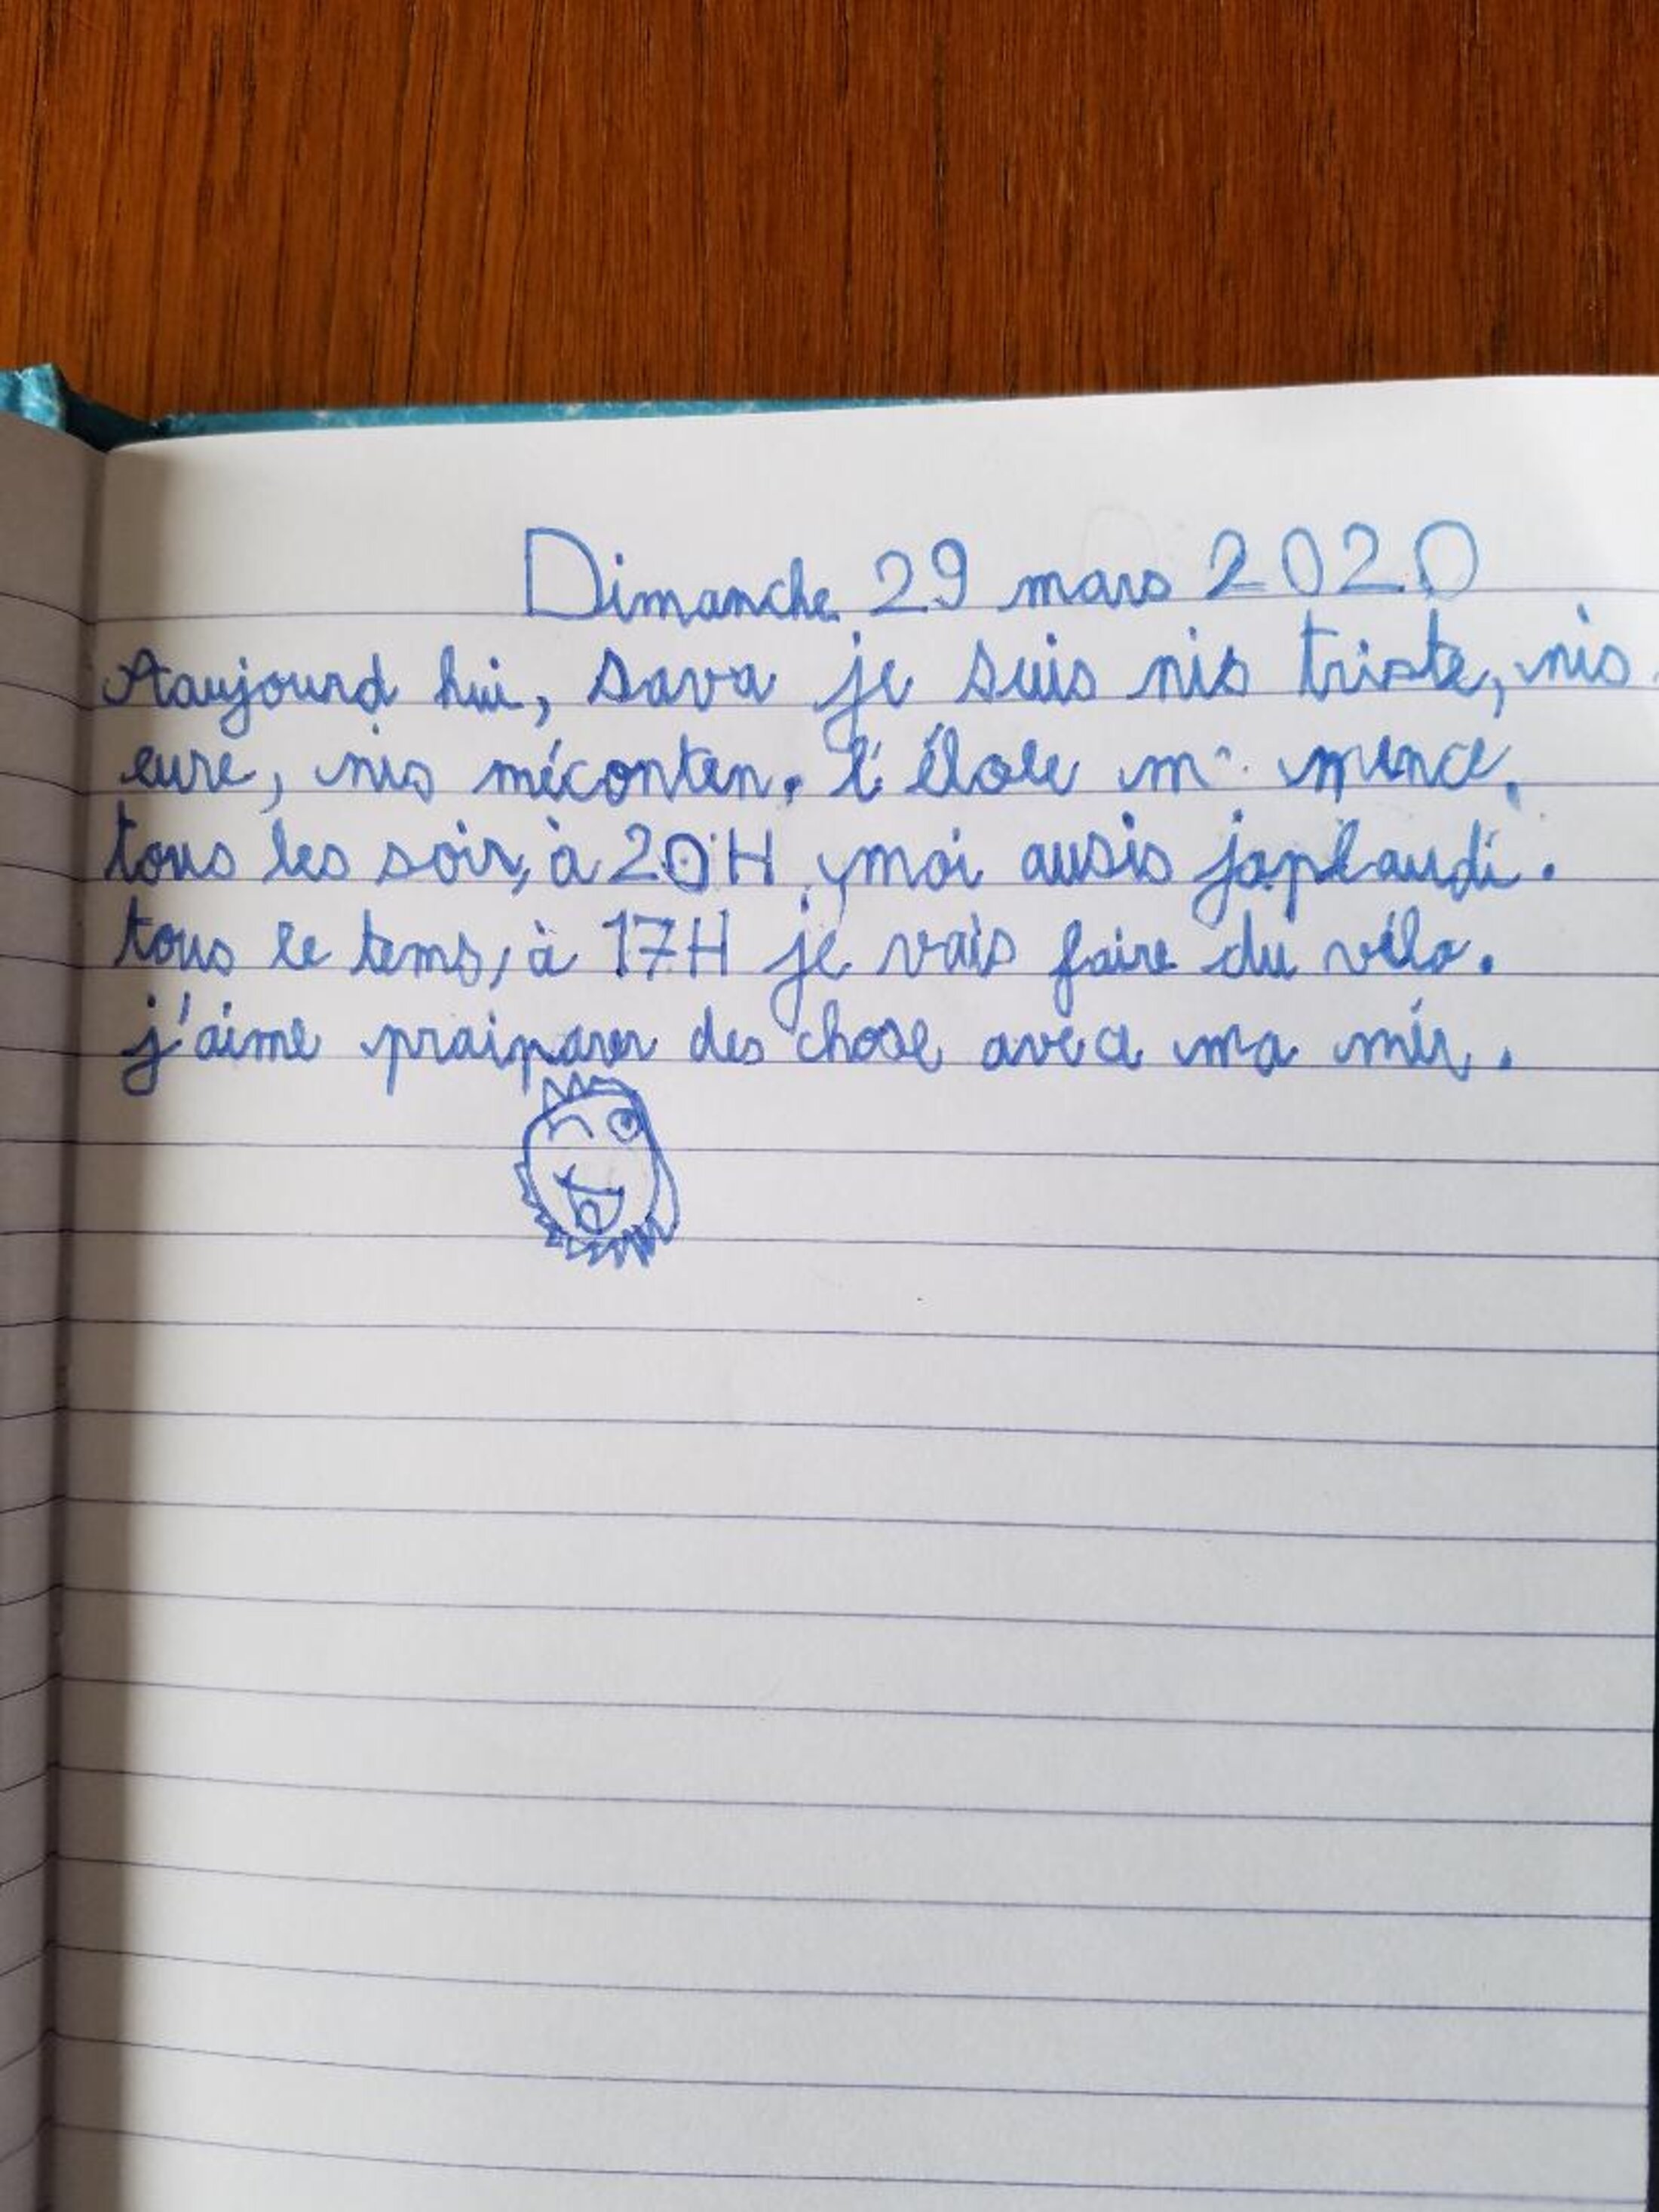 Dimanche 29 mars 2020
Aaujourd hui, sava je suis nis triste, nis
eure, nis méconten. l'école m mence.
tous les soir, à 20H, moi ausis japlaudi.
tous le tems, à 17H je vais faire du vélo.
j'aime praiparer des chose avec ma mér.